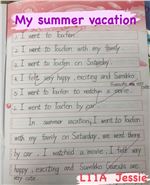 My summer vacation
1. I went to Toufen.
2. I went to Toufen with my family
3. I went to Toufen on Saturday.
4. I felt very happy, exciting and Sumikko
are very
cute.
5. I went to Toufen to watch a movie.
6. I went to Toufen by car.
In summer vacation, I went to Toufen
with my family on Saturday. We went there
by car. I watched a movie. I felt very
happy, exciting and Sumikko Gurashi are
very cute.
L11A Jessie